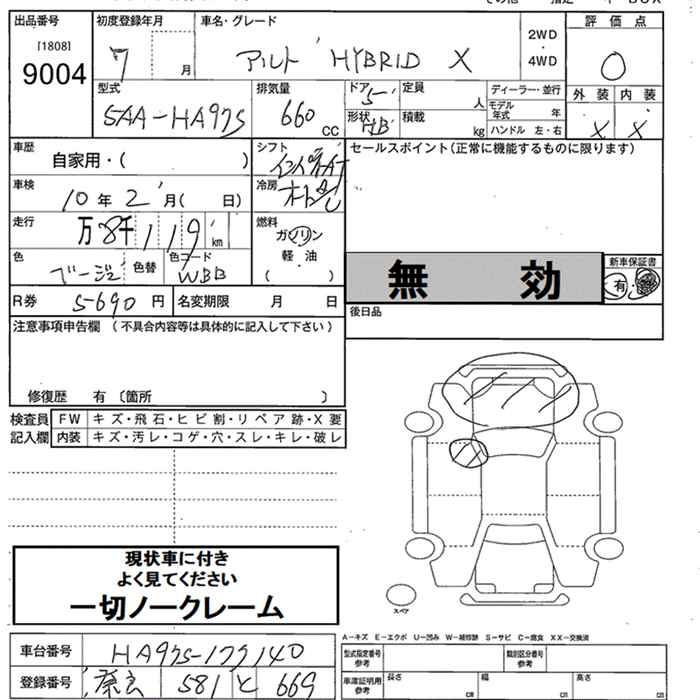 出品番号
[1808]
9004
初度登録年月
7 月
車名・グレード
アルト HYBRID X
2WD
・
4WD
評価点
0
外装 内装
X X
型式
5AA-HA97S
排気量
660 CC
ドア
5
形状
HB
定員
人
積載
kg
ディーラー・並行
モデル年式 年
ハンドル 左・右
車歴
自家用・( )
シフト
インパネAT
セールスポイント(正常に機能するものに限ります)
車検
10年 2月( 日)
冷房
走行
万8千119 km
燃料
ガソリン
軽油
( ・ )
色
ベージュ
色替
色コード
WBB
無効
新車保証書
有・無
R券
5690円
名変期限 月 日
後日品
注意事項申告欄 (不具合内容等は具体的に記入して下さい)
修復歴 有 〔箇所 〕
検査員
記入欄
FW キズ・飛石・ヒビ割・リペア跡・X要
内装 キズ・汚レ・コゲ・穴・スレ・キレ・破レ
現状車に付き
よく見てください
一切ノークレーム
スペア
A-キズ E-エクボ U-凹み W-補修跡 S-サビ C-腐食 XX-交換済
車台番号
HA97S-177140
型式指定番号
参考
類別区分番号
参考
登録番号
581 と 669
車庫証明用
参考
長さ cm
幅 cm
高さ cm